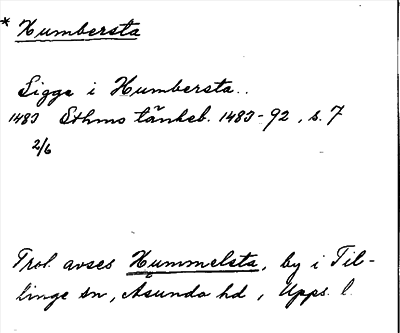 * Humbersta
Sigge i Humbersta..
1483 Sthms tänkeb. 1483-92, s. 7
2/6
Trol. avses Hummelsta, by i Til-
linge sn, Åsunda hd, Upps. l.